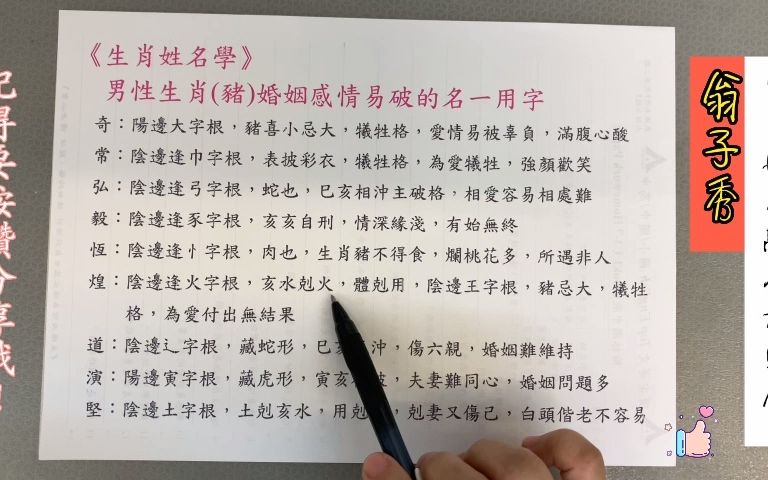 《生肖姓名學》
男性生肖(豬)婚姻感情易破的名一用字
奇：陽邊大字根，豬喜小忌大，犧牲格，愛情易被辜負，滿腹心酸
常：陰邊逢巾字根，表披彩衣，犧牲格，為愛犧牲，強顏歡笑
弘：陰邊逢弓字根，蛇也，巳亥相沖主破格，相愛容易相處難
毅：陰邊逢豕字根，亥亥自刑，情深緣淺，有始無終
恆：陰邊逢忄字根，肉也，生肖豬不得食，爛桃花多，所遇非人
煌：陰邊逢火字根，亥水剋火，體剋用，陰邊王字根，豬忌大，犧牲
格，為愛付出無結果
道：陰邊辶字根，藏蛇形，巳亥沖，傷六親，婚姻難維持
演：陽邊寅字根，藏虎形，寅亥，夫妻難同心，婚姻問題多
堅：陰邊土字根，土剋亥水，用剋，剋妻又傷己，白頭偕老不容易
翁子秀
記得要按讚分享哦！